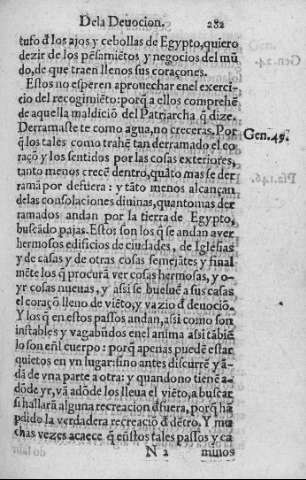 De la Deuocion. 282
tufo đ los ajos y cebollas de Egypto, quiero
dezir de los pẽsamiẽtos y negocios del mũ
do, de que traen llenos sus coraçones.
Estos no esperen aprouechar en el exerci-
cio del recogimiẽto: porq̃ a ellos comprehẽ
de aquella maldiciõ del Patriarcha q̃ dize.
Derramaste te como agua, no creceras. Por Gen. 49.
q̃ los tales como trahẽ tan derramado el co
raçõ y los sentidos por las cosas exteriores,
tanto menos crecẽ dentro, quãto mas se der
ramã por defuera: y tãto menos alcançan
de las consolaciones diuinas, quanto mas der
ramados andan por la tierra de Egypto,
buscãdo pajas. Estos son los q̃ se andan a ver
hermosos edificios de ciudades, de Iglesias
y de casas y de otras cosas semejãtes y final
mẽte los q̃ procurã ver cosas hermosas, y o-
yr cosas nueuas, y assi se bueluẽ a sus casas
el coraçõ lleno de viẽto, y vazio đ deuociõ.
Y los q̃ en estos passos andan, assi como son
instables y vagabũdos en el anima assi tãbiẽ
lo son en̄l cuerpo: porq̃ apenas puedẽ estar
quietos en vn lugar: sino antes discurrẽ y ã-
dã de vna parte a otra: y quando no tienẽ a-
dõde yr, vã adõde los lleua el viẽto, a buscar
si hallarã alguna recreacion đfuera, porq̃ hã
pdido la verdadera recreaciõ đ dẽtro. Y mu
chas vezes acaece q̃ en̄stos tales passos y ca
N 2 minos